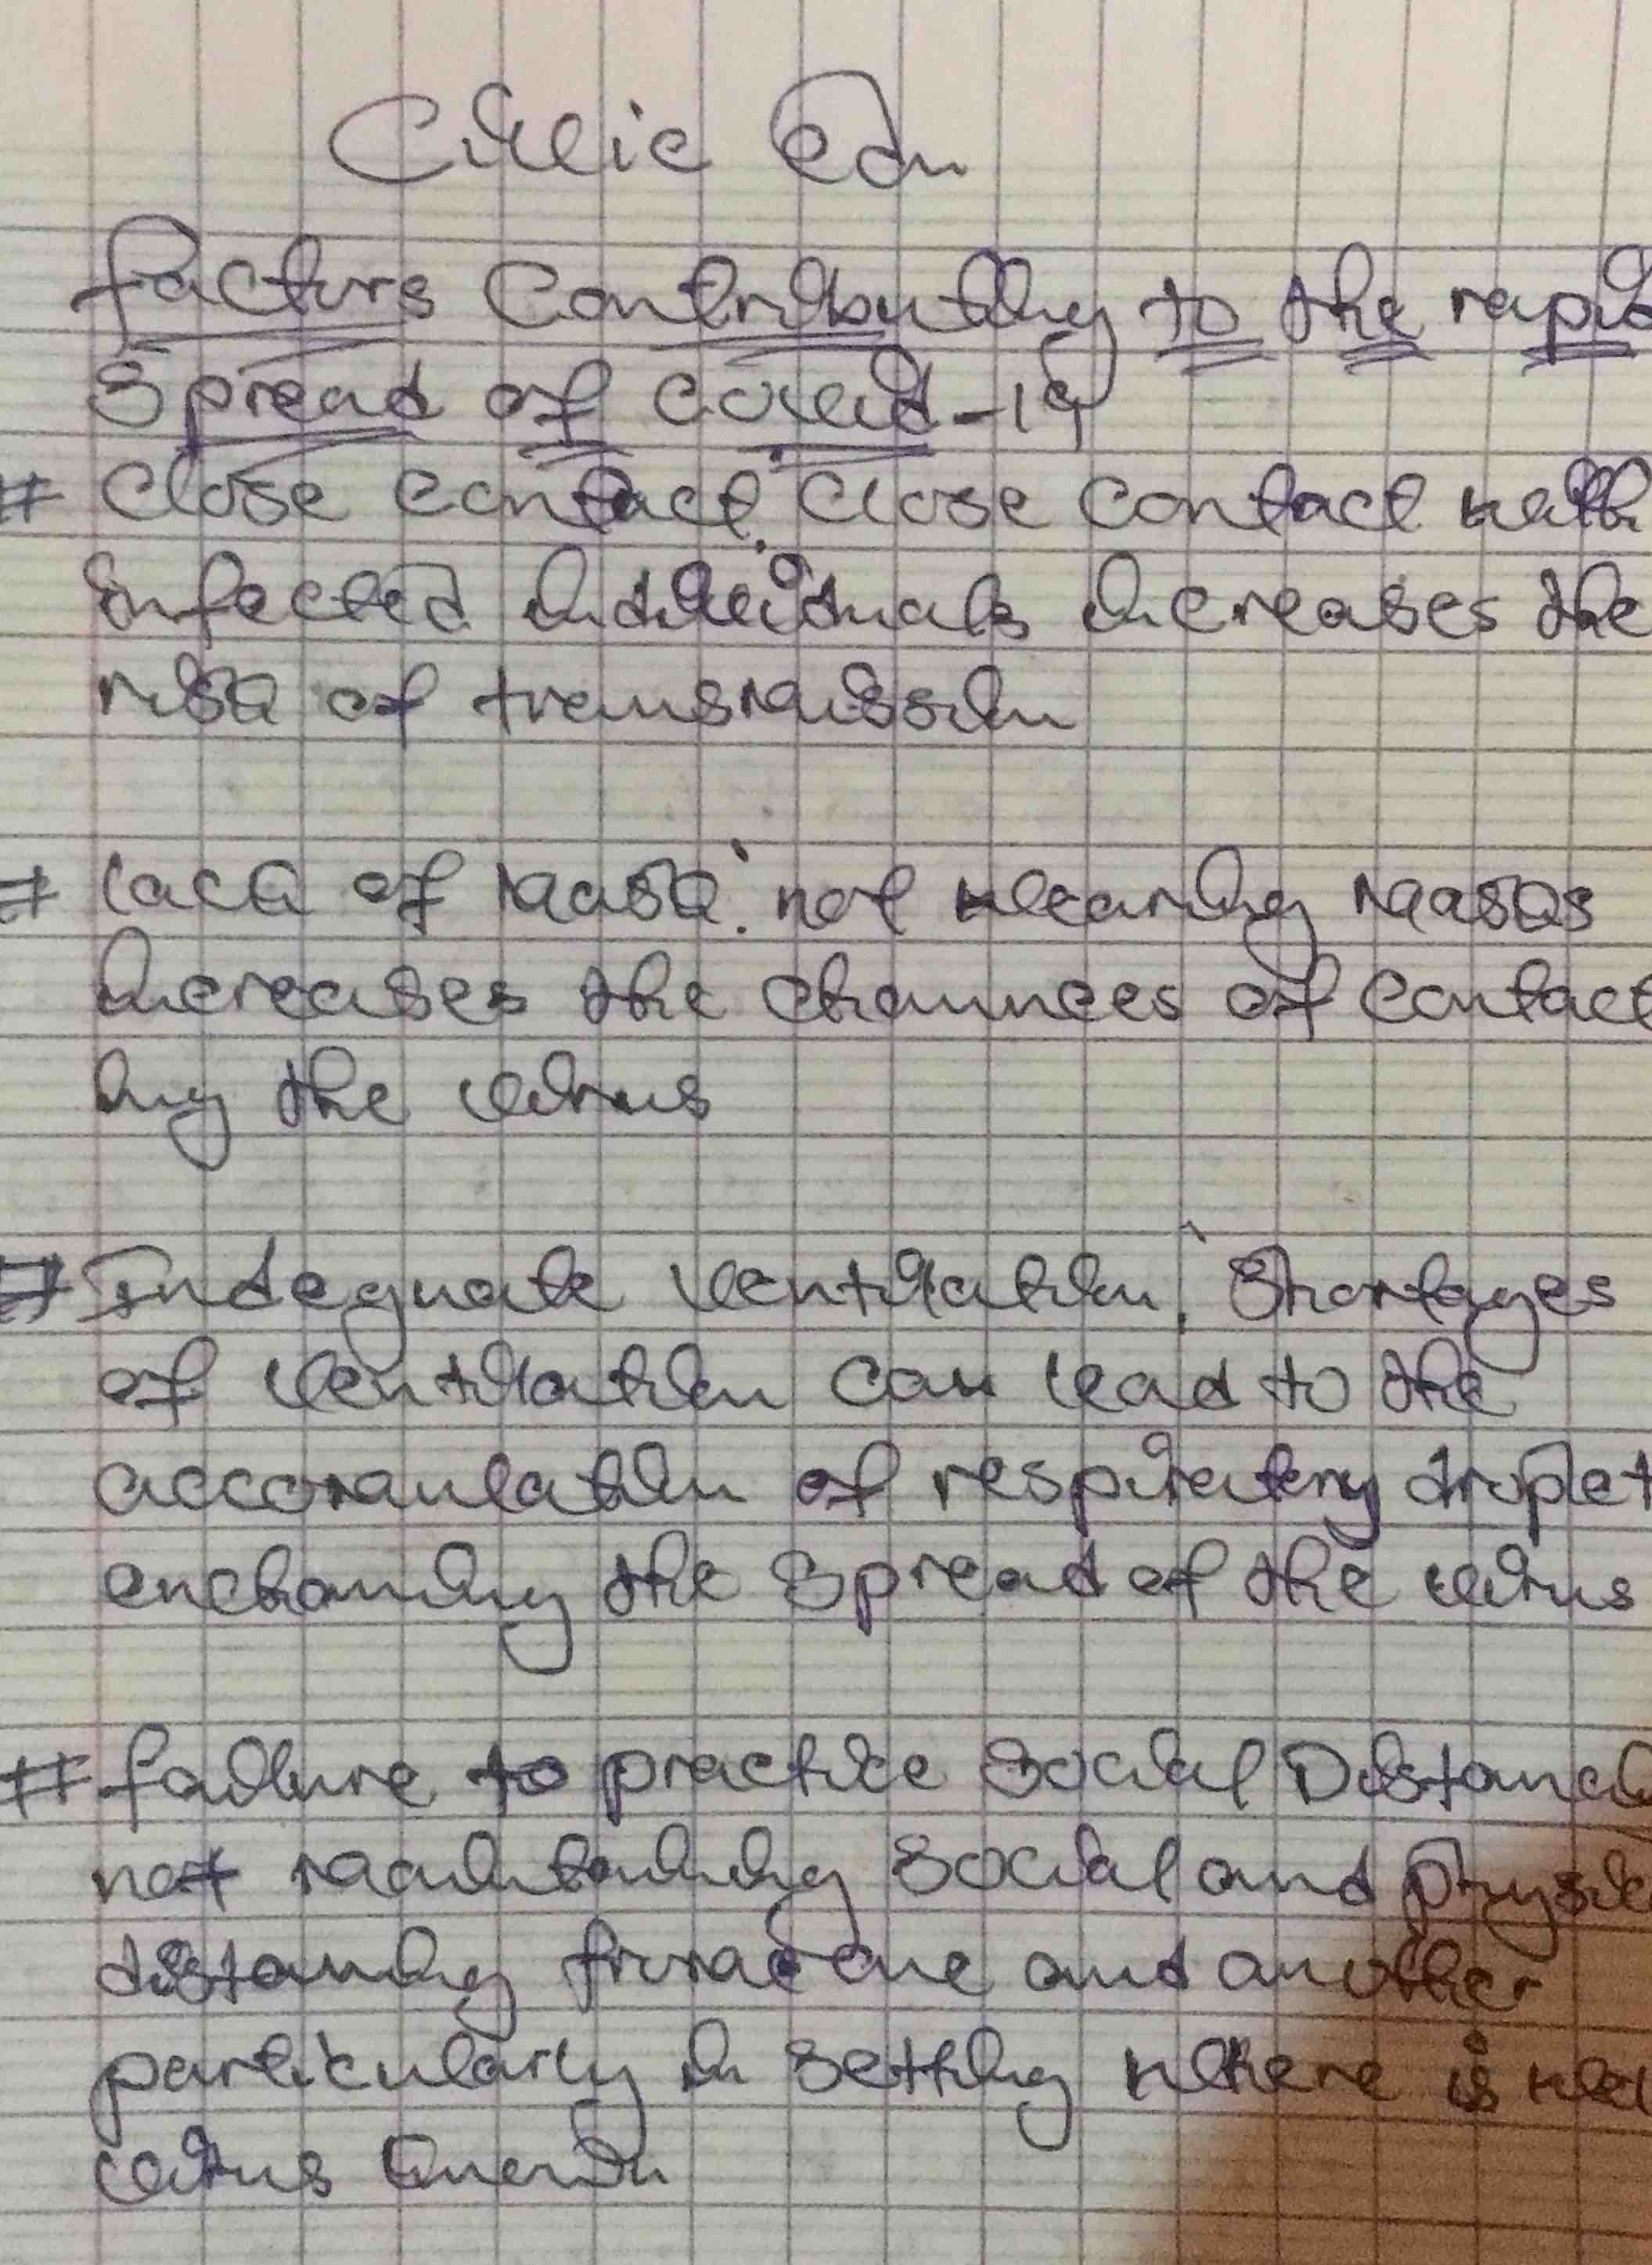 Civic Edu
factors Contributing to the rapid
Spread of covid-19
# Close contact: Close contact with
infected individuals increases the
risk of transmission
# lack of Mask: not wearing masks
increases the channces of contact
ing the virus
# Indequate ventilation: Shortages
of ventilation can lead to the
accomulation of respiratory droplet
enchancing the spread of the virus
# failure to practice Social Distanci
not maintaining social and physic
distancing from one and another
particularly in setting where is
virus